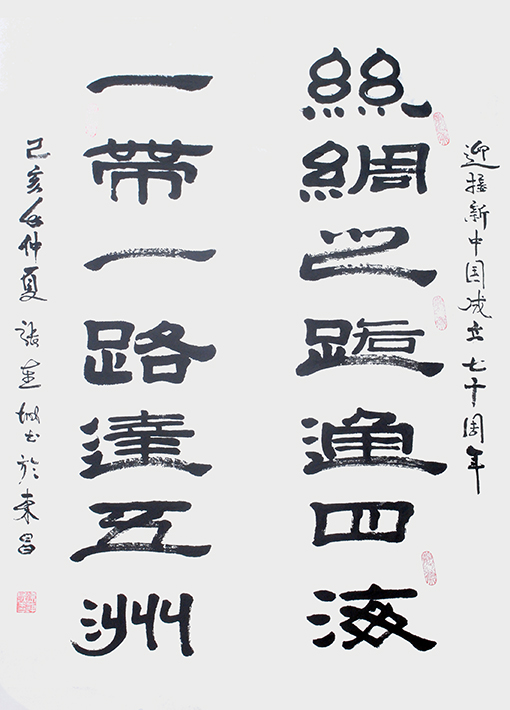 迎接新中国成立七十周年
絲綢之路通四海
一帶一路達五洲
己亥年仲夏 張城书於東昌